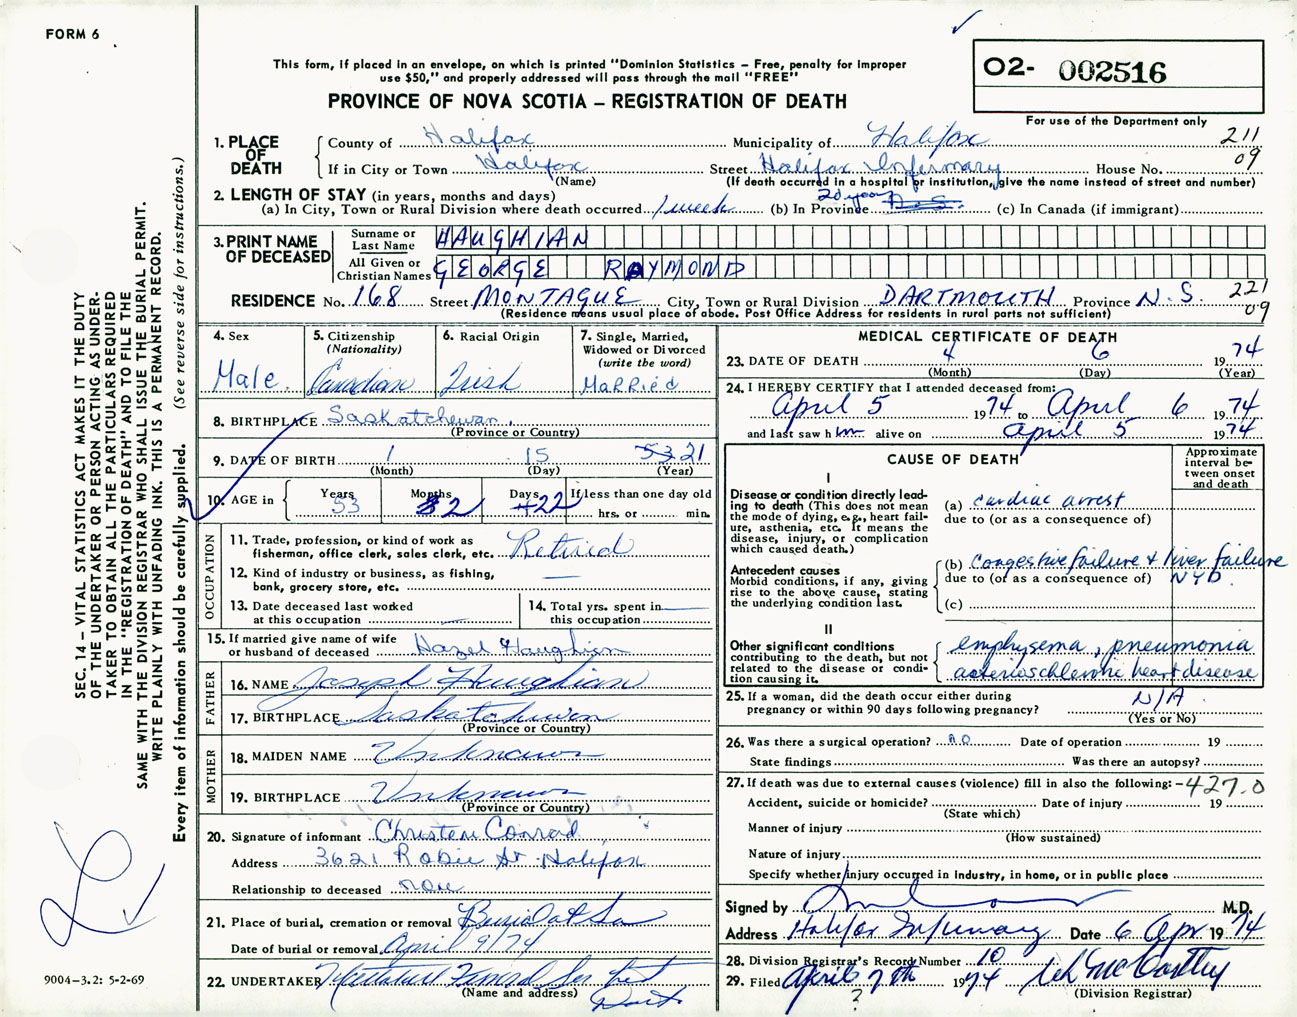 FORM 6
This form, if placed in an envelope, on which is printed "Dominion Statistics – Free, penalty for improper
use $50," and properly addressed will pass through the mail "FREE"
PROVINCE OF NOVA SCOTIA – REGISTRATION OF DEATH
02- 002516
For use of the Department only
211
09
1. PLACE OF DEATH
County of Halifax Municipality of Halifax
If in City or Town Halifax Street Halifax Infirmary House No.
(Name) (If death occurred in a hospital or institution, give the name instead of street and number)
2. LENGTH OF STAY (in years, months and days)
(a) In City, Town or Rural Division where death occurred 1 week (b) In Province 20 years N.S. (c) In Canada (if immigrant)
3. PRINT NAME OF DECEASED
Surname or Last Name HAUGHIAN
All Given or Christian Names GEORGE RAYMOND
RESIDENCE No. 168 Street MONTAGUE City, Town or Rural Division DARTMOUTH Province N.S.
221
09
(Residence means usual place of abode. Post Office Address for residents in rural parts not sufficient)
4. Sex
Male.
5. Citizenship
(Nationality)
Canadian
6. Racial Origin
Irish
7. Single, Married,
Widowed or Divorced
(write the word)
MaRRied
8. BIRTHPLACE Saskatchewan.
(Province or Country)
9. DATE OF BIRTH 1 15 53 21
(Month) (Day) (Year)
10. AGE in
Years 53
Months 2
Days 22
If less than one day old
hrs. or min.
OCCUPATION
11. Trade, profession, or kind of work as
fisherman, office clerk, sales clerk, etc. Retired
12. Kind of industry or business, as fishing,
bank, grocery store, etc. —
13. Date deceased last worked
at this occupation —
14. Total yrs. spent in
this occupation
15. If married give name of wife
or husband of deceased Hazel Haughian
FATHER
16. NAME Joseph Haughian
17. BIRTHPLACE Saskatchewan
(Province or Country)
MOTHER
18. MAIDEN NAME Unknown
19. BIRTHPLACE Unknown
(Province or Country)
20. Signature of informant Christene Conrod
Address 3621 Robie St. Halifax
Relationship to deceased none
21. Place of burial, cremation or removal Burial at Sea
Date of burial or removal April 9/74
22. UNDERTAKER Funeral Ser
(Name and address)
Dart.
MEDICAL CERTIFICATE OF DEATH
23. DATE OF DEATH 4 6 1974
(Month) (Day) (Year)
24. I HEREBY CERTIFY that I attended deceased from:
April 5 1974 to April 6 1974
and last saw him alive on April 5 1974
CAUSE OF DEATH
Approximate
interval be-
tween onset
and death
I
Disease or condition directly lead-
ing to death (This does not mean
the mode of dying, e.g., heart fail-
ure, asthenia, etc. It means the
disease, injury, or complication
which caused death.)
(a) cardiac arrest
due to (or as a consequence of)
Antecedent causes
Morbid conditions, if any, giving
rise to the above cause, stating
the underlying condition last.
(b) Congestive failure + liver failure
due to (or as a consequence of) NYD
(c)
II
Other significant conditions
contributing to the death, but not
related to the disease or condi-
tion causing it.
emphysema, pneumonia
arterioschlerotic heart disease
25. If a woman, did the death occur either during
pregnancy or within 90 days following pregnancy? N/A
(Yes or No)
26. Was there a surgical operation? no Date of operation 19
State findings Was there an autopsy?
27. If death was due to external causes (violence) fill in also the following: - 427.0
Accident, suicide or homicide? Date of injury 19
(State which)
Manner of injury
(How sustained)
Nature of injury
Specify whether injury occurred in industry, in home, or in public place
Signed by M.D.
Address Halifax Infirmary Date 6 Apr 1974
28. Division Registrar's Record Number 10
29. Filed April 7th 1974
?
(Division Registrar)
SEC. 14 – VITAL STATISTICS ACT MAKES IT THE DUTY
OF THE UNDERTAKER OR PERSON ACTING AS UNDER-
TAKER TO OBTAIN ALL THE PARTICULARS REQUIRED
IN THE "REGISTRATION OF DEATH" AND TO FILE THE
SAME WITH THE DIVISION REGISTRAR WHO SHALL ISSUE THE BURIAL PERMIT.
WRITE PLAINLY WITH UNFADING INK. THIS IS A PERMANENT RECORD.
Every item of information should be carefully supplied. (See reverse side for instructions.)
9004–3.2: 5-2-69